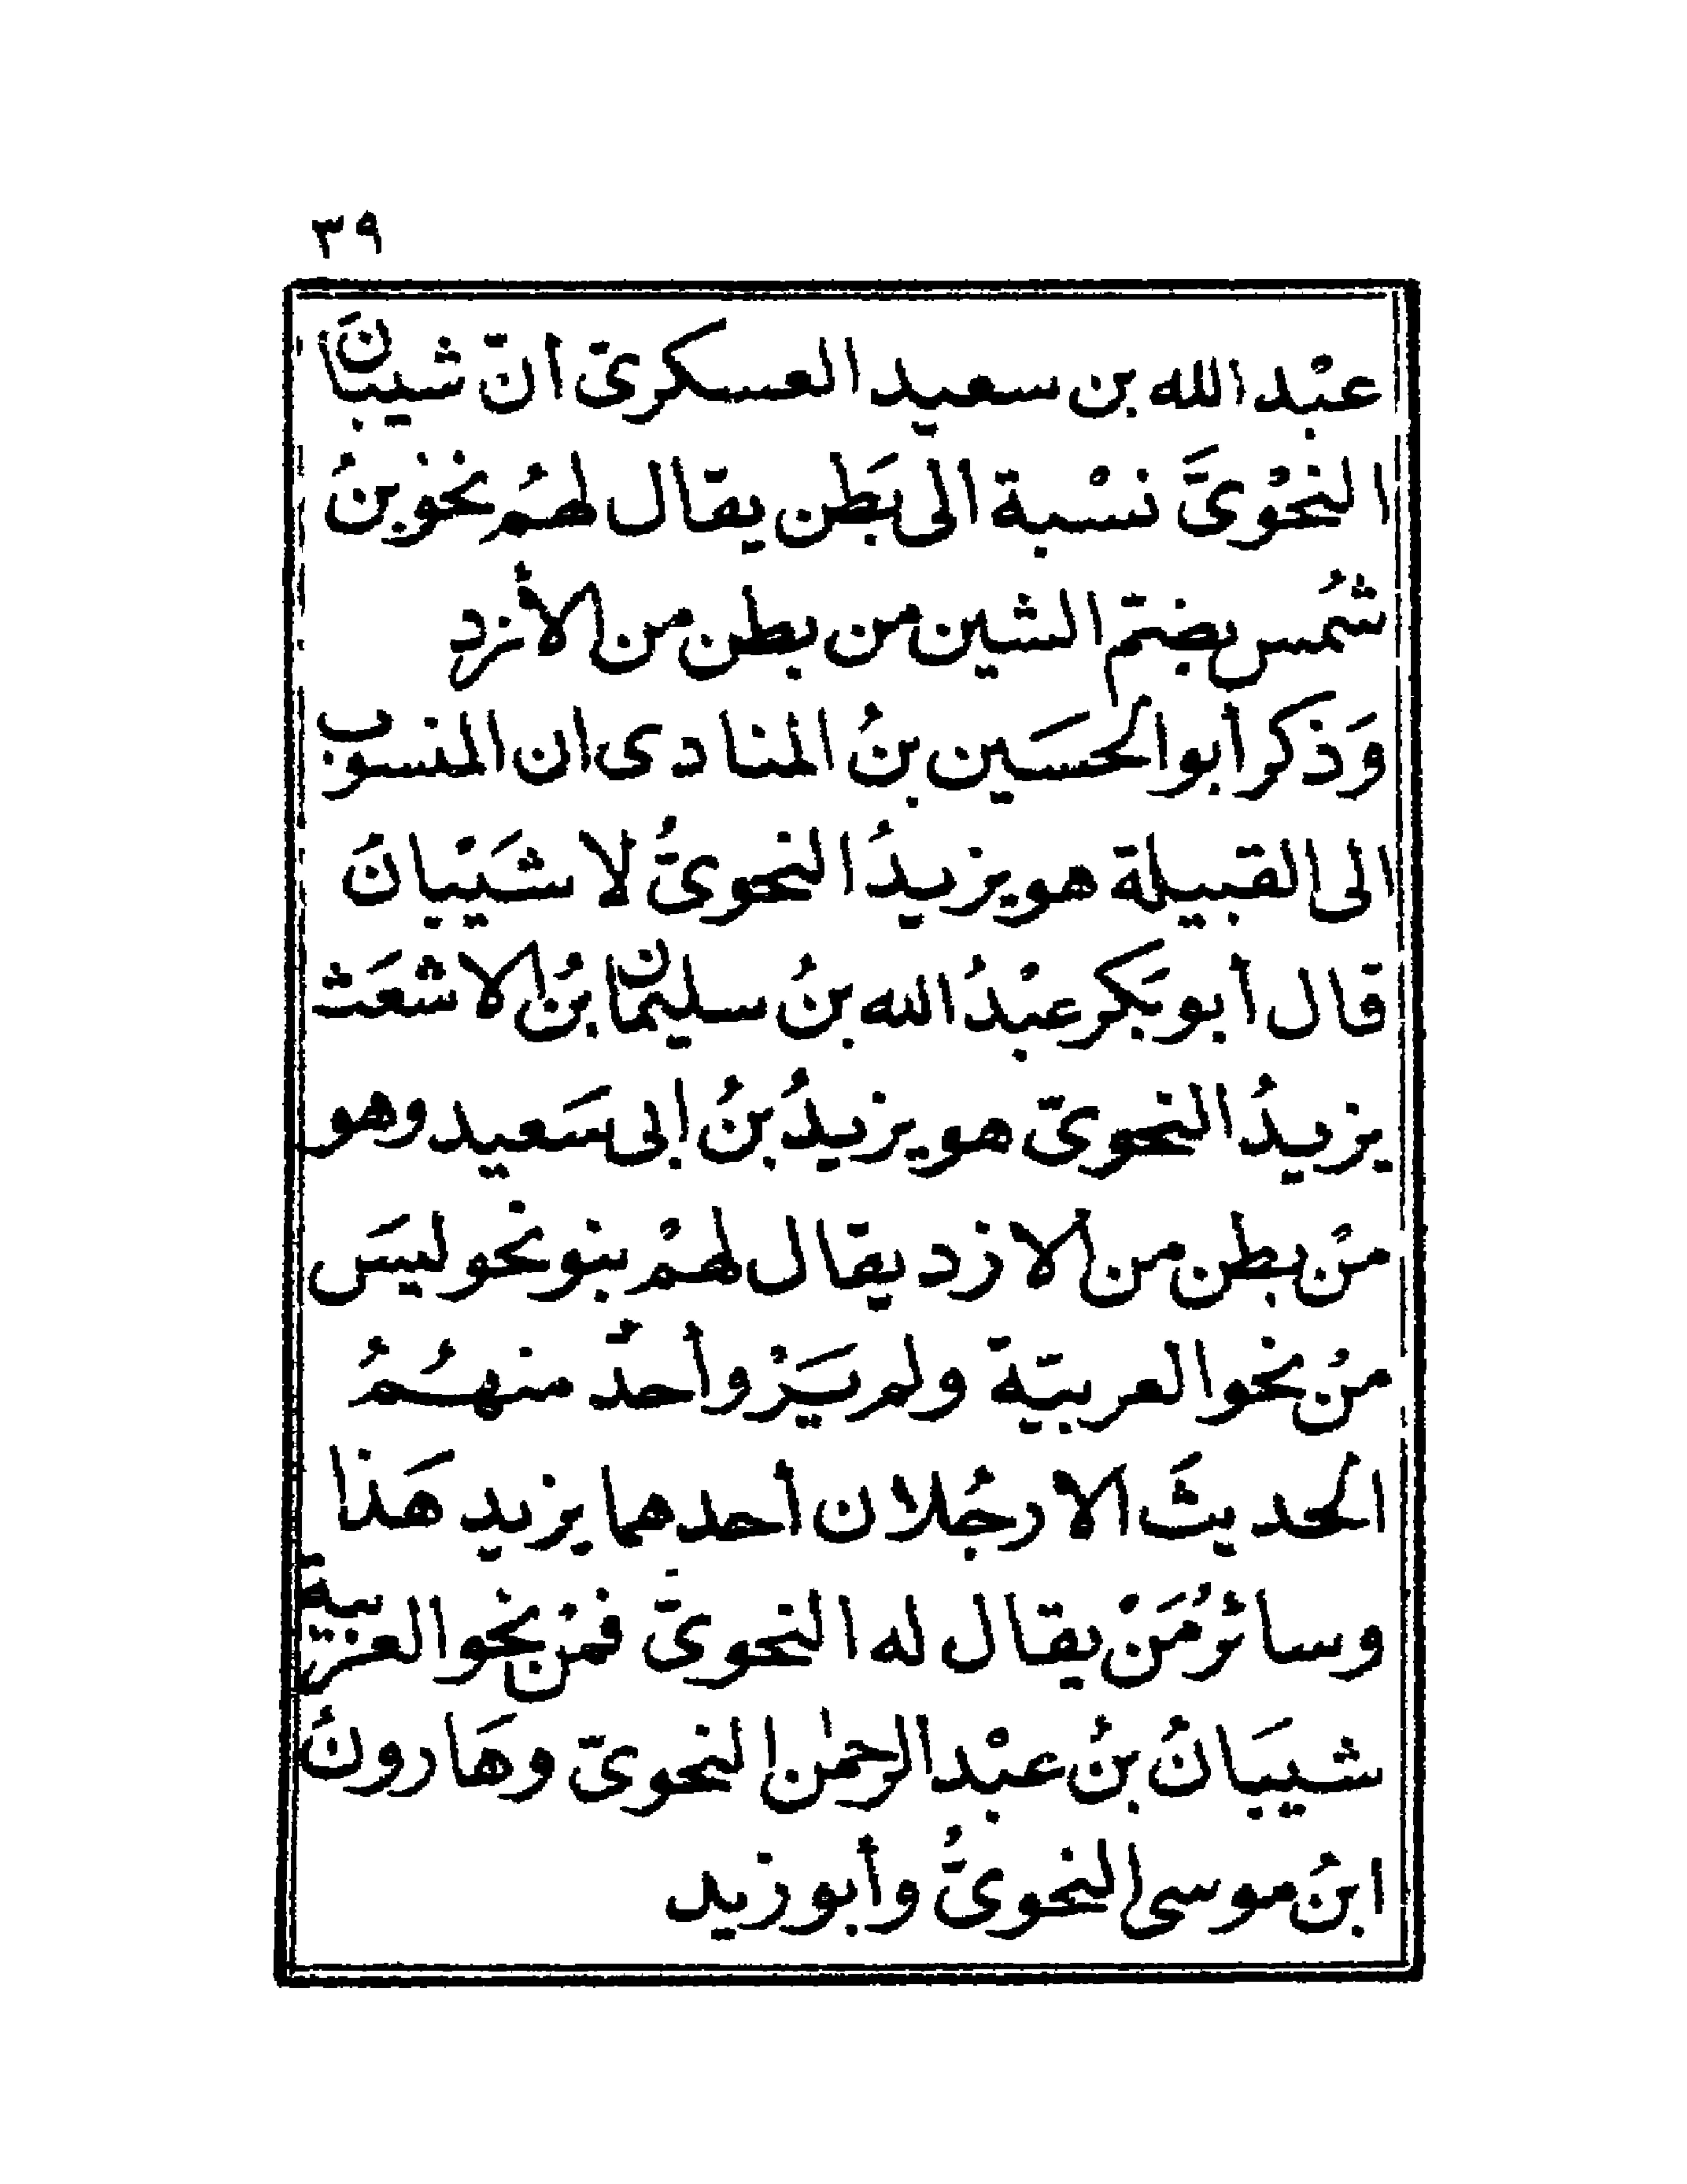 ٣٩
عبْد الله بن سعيد العسكرىّ انّ شيبانَ
النحْوىَّ نسْبة الى بَطْن يقال لهمْ نحْو بنُ
شُمس بضمّ الشين من بطن من الأزد
وَذكر أبو الحسَين بنُ المنادى ان المنسوب
الى القبيلة هو يزيدُ النحوىُّ لا شَيْبانَ
قال أبو بَكر عبْدُ الله بنُ سليمان بنُ الاشعَث
يزيدُ النحوىّ هو يزيدُ بنُ ابى سَعيد وهو
منْ بطن من الازد يقال لهمْ بنو نحو ليسَ
منْ نحو العربيّة ولم يَرْو أحدٌ منهُمُ
الحديثَ الا رجُلان أحدهما يزيد هَذا
وسائرُ مَنْ يقال له النحوىّ فمنْ نحو العربية
شيبَانُ بنُ عبْد الرحمٰن النحوىّ وهَارونُ
ابنُ موسى النحوىُّ وأبو زيد